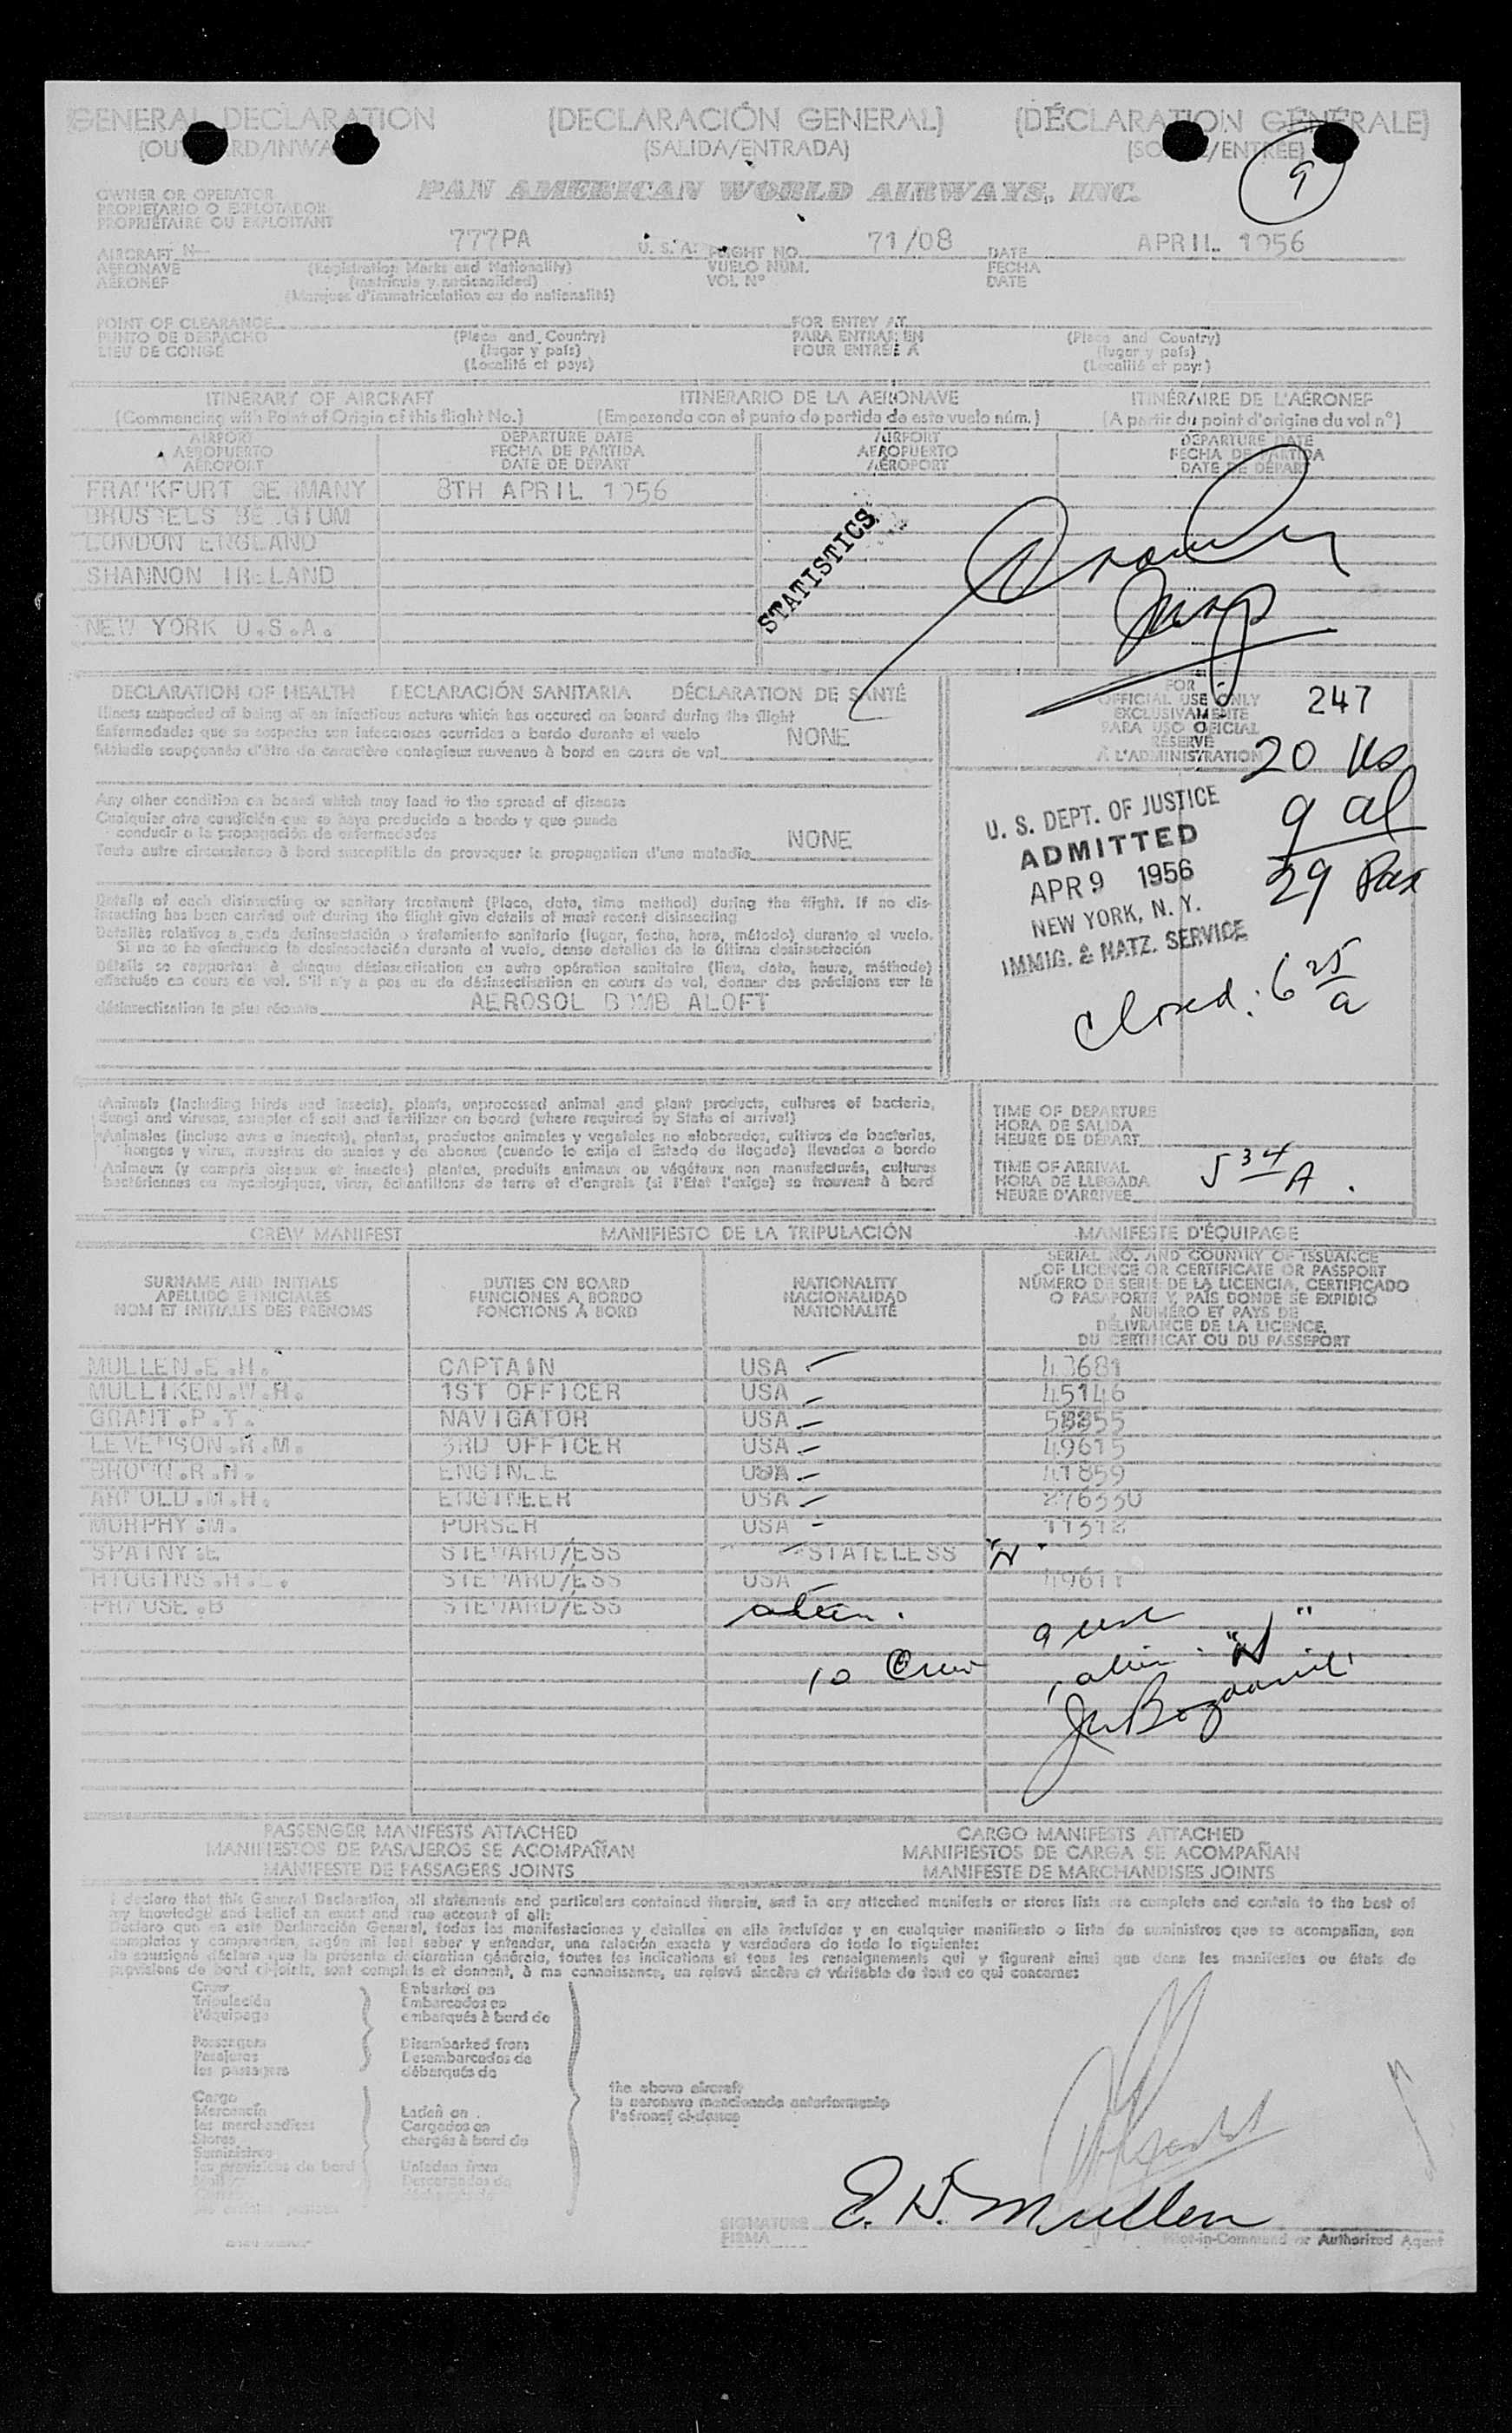 GENERAL DECLARATION (DECLARACIÓN GENERAL) (DÉCLARATION GÉNÉRALE)
(OUTWARD/INWARD) (SALIDA/ENTRADA) (SORTIE/ENTRÉE)
9
OWNER OR OPERATOR PAN AMERICAN WORLD AIRWAYS, INC.
PROPIETARIO O EXPLOTADOR
PROPRIÉTAIRE OU EXPLOITANT
AIRCRAFT N- 777PA U. S. A. FLIGHT NO. 71/08 DATE APRIL 1956
AERONAVE (Registration Marks and Nationality) VUELO NÚM. FECHA
AÉRONEF (matrícula y nacionalidad) VOL Nº DATE
(Marques d'immatriculation ou de nationalité)
POINT OF CLEARANCE FOR ENTRY AT
PUNTO DE DESPACHO (Place and Country) PARA ENTRAR EN (Place and Country)
LIEU DE CONGÉ (lugar y país) POUR ENTRÉE À (lugar y país)
(Localité et pays) (Localité et pays)
ITINERARY OF AIRCRAFT ITINERARIO DE LA AERONAVE ITINÉRAIRE DE L'AÉRONEF
(Commencing with Point of Origin of this flight No.) (Empezando con el punto de partida de este vuelo núm.) (A partir du point d'origine du vol nº)
AIRPORT DEPARTURE DATE AIRPORT DEPARTURE DATE
AEROPUERTO FECHA DE PARTIDA AEROPUERTO FECHA DE PARTIDA
AÉROPORT DATE DE DÉPART AÉROPORT DATE DE DÉPART
FRANKFURT GERMANY 8TH APRIL 1956
BRUSSELS BELGIUM
LONDON ENGLAND
SHANNON IRELAND
NEW YORK U.S.A.
STATISTICS
DECLARATION OF HEALTH DECLARACIÓN SANITARIA DÉCLARATION DE SANTÉ
Illness suspected of being of an infectious nature which has occured on board during the flight
Enfermedades que se sospecha son infecciosas ocurridas a bordo durante el vuelo NONE
Maladie soupçonnée d'être de caractère contagieux survenue à bord en cours de vol
FOR
OFFICIAL USE ONLY 247
EXCLUSIVAMENTE
PARA USO OFICIAL
RÉSERVÉ
À L'ADMINISTRATION
20 Us
9 al
29 Pax
Any other condition on board which may lead to the spread of disease
Cualquier otra condición que se haya producido a bordo y que pueda
conducir a la propagación de enfermedades NONE
Toute autre circonstance à bord susceptible de provoquer la propagation d'une maladie
U. S. DEPT. OF JUSTICE
ADMITTED
APR 9 1956
NEW YORK, N. Y.
IMMIG. & NATZ. SERVICE
Closed: 6 25 a
Details of each disinsecting or sanitary treatment (Place, date, time method) during the flight. If no dis-
insecting has been carried out during the flight give details of most recent disinsecting
Detalles relativos a cada desinsectación o tratamiento sanitario (lugar, fecha, hora, método) durante el vuelo.
Si no se ha efectuado la desinsectación durante el vuelo, dense detalles de la última desinsectación
Détails se rapportant à chaque désinsectisation ou autre opération sanitaire (lieu, date, heure, méthode)
effectuée en cours de vol. S'il n'y a pas eu de désinsectisation en cours de vol, donner des précisions sur la
désinsectisation la plus récente AEROSOL BOMB ALOFT
Animals (including birds and insects), plants, unprocessed animal and plant products, cultures of bacteria,
fungi and viruses, samples of soil and fertilizer on board (where required by State of arrival)
Animales (incluso aves e insectos), plantas, productos animales y vegetales no elaborados, cultivos de bacterias,
hongos y virus, muestras de suelos y de abonos (cuando lo exija el Estado de llegada) llevados a bordo
Animaux (y compris oiseaux et insectes) plantes, produits animaux ou végétaux non manufacturés, cultures
bactériennes ou mycologiques, virus, échantillons de terre et d'engrais (si l'État l'exige) se trouvant à bord
TIME OF DEPARTURE
HORA DE SALIDA
HEURE DE DÉPART
TIME OF ARRIVAL
HORA DE LLEGADA 5 34 A.
HEURE D'ARRIVÉE
CREW MANIFEST MANIFIESTO DE LA TRIPULACIÓN MANIFESTE D'ÉQUIPAGE
SURNAME AND INITIALS
APELLIDO E INICIALES
NOM ET INITIALES DES PRÉNOMS
DUTIES ON BOARD
FUNCIONES A BORDO
FONCTIONS À BORD
NATIONALITY
NACIONALIDAD
NATIONALITÉ
SERIAL NO. AND COUNTRY OF ISSUANCE
OF LICENCE OR CERTIFICATE OR PASSPORT
NÚMERO DE SERIE DE LA LICENCIA, CERTIFICADO
O PASAPORTE Y PAÍS DONDE SE EXPIDIÓ
NUMÉRO ET PAYS DE
DÉLIVRANCE DE LA LICENCE,
DU CERTIFICAT OU DU PASSEPORT
MULLEN.E.H. CAPTAIN USA 43681
MULLIKEN.W.R. 1ST OFFICER USA 45146
GRANT.P.T. NAVIGATOR USA 58355
LEVENSON.R.M. 3RD OFFICER USA 49615
BROWN.R.H. ENGINEE USA 41859
ARNOLD.M.H. ENGINEER USA 276330
MURPHY.M. PURSER USA 11312
SPATNY.E STEWARD/ESS STATELESS "N"
HIGGINS.H.L. STEWARD/ESS USA 49611
PRAUSE.B STEWARD/ESS alien.
9 usc
10 Crew 1 alien "N"
PASSENGER MANIFESTS ATTACHED CARGO MANIFESTS ATTACHED
MANIFIESTOS DE PASAJEROS SE ACOMPAÑAN MANIFIESTOS DE CARGA SE ACOMPAÑAN
MANIFESTE DE PASSAGERS JOINTS MANIFESTE DE MARCHANDISES JOINTS
I declare that this General Declaration, all statements and particulars contained therein, and in any attached manifests or stores lists are complete and contain to the best of
my knowledge and belief an exact and true account of all:
Declaro que en este Declaración General, todas las manifestaciones y detalles en ella incluídos y en cualquier manifiesto o lista de suministros que se acompañan, son
completos y comprenden, según mi leal saber y entender, una relación exacta y verdadera de todo lo siguiente:
Je soussigné déclare que la présente déclaration générale, toutes les indications et tous les renseignements qui y figurent ainsi que dans les manifestes ou états de
provisions de bord ci-joints, sont complets et donnent, à ma connaissance, un relevé sincère et véritable de tout ce qui concerne:
Crew Embarked on
Tripulación Embarcados en
l'équipage embarqués à bord de
Passengers Disembarked from
Pasajeros Desembarcados de
les passagers débarqués de
the above aircraft
la aeronave mencionada anteriormente
l'aéronef ci-dessus
Cargo
Mercancía Laden on
les marchandises Cargados en
Stores chargés à bord de
Suministros
les provisions de bord Unladen from
Descargados de
SIGNATURE E. H. Mullen
FIRMA Pilot-in-Command or Authorized Agent